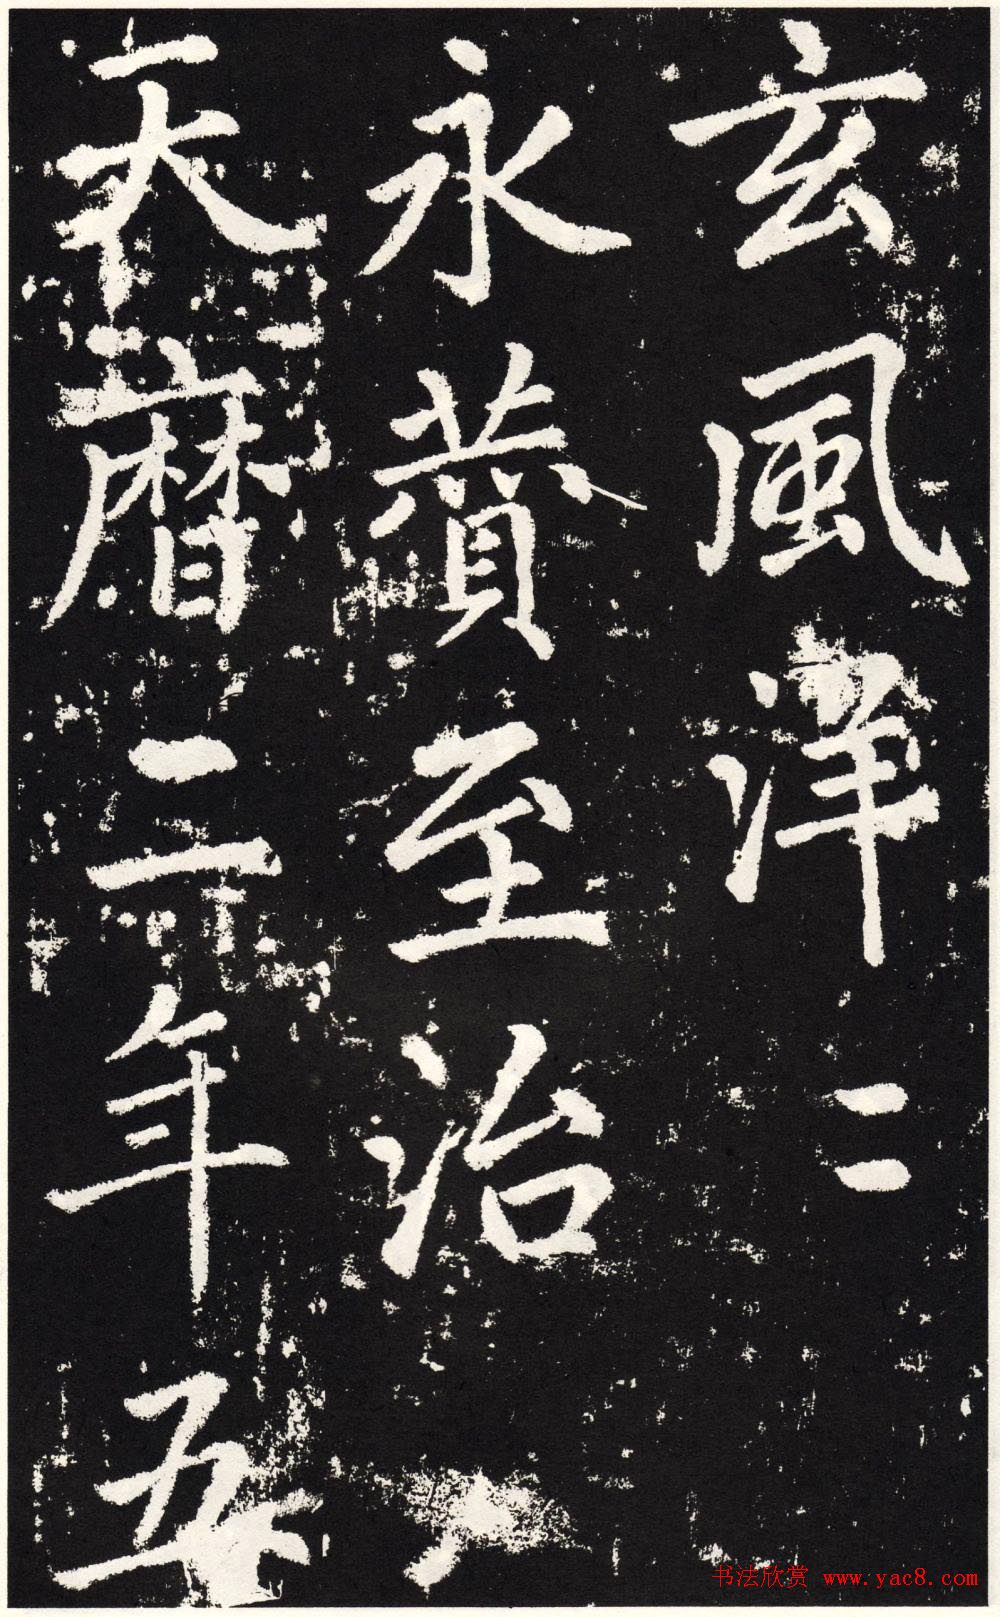 玄風洋二
永贊至治
天曆二年五
书法欣赏 www.yac8.com